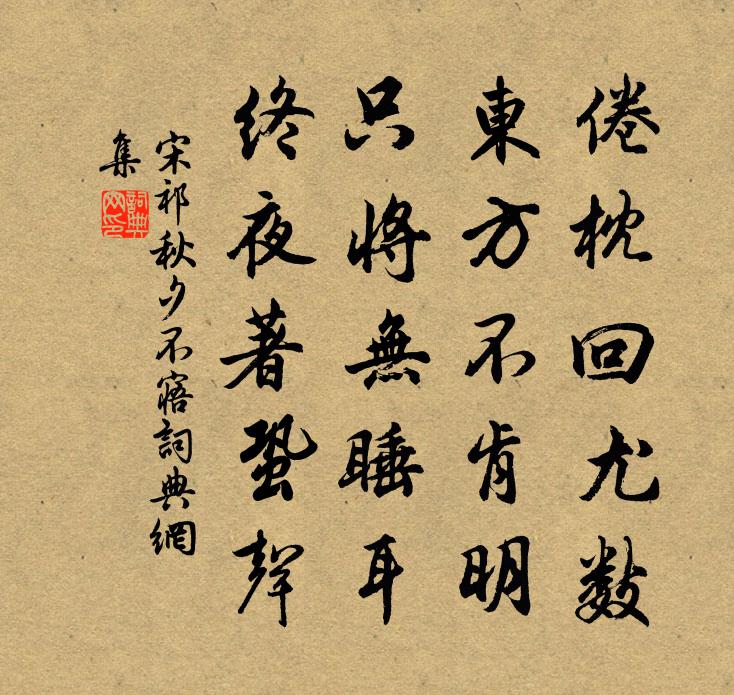 倦枕回尤數
東方不肯明
只將無睡耳
終夜著蛩聲
宋祁秋夕不寤詞典網
集
詞典
网印